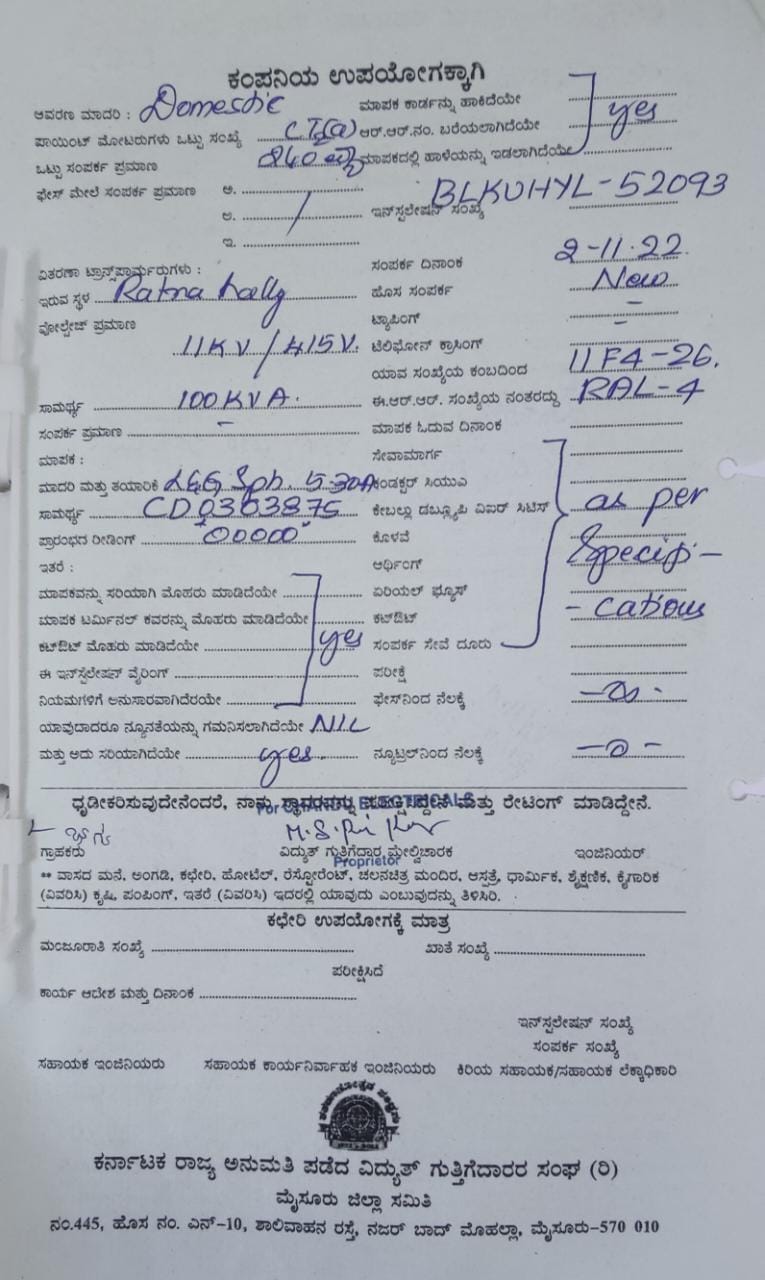 ಕಂಪನಿಯ ಉಪಯೋಗಕ್ಕಾಗಿ
ಆವರಣ ಮಾದರಿ : Domestic ಮಾಪಕ ಕಾರ್ಡನ್ನು ಹಾಕಿದೆಯೇ
ಪಾಯಿಂಟ್ ಮೋಟರುಗಳು ಒಟ್ಟು ಸಂಖ್ಯೆ ಆರ್.ಆರ್.ನಂ. ಬರೆಯಲಾಗಿದೆಯೇ yes
ಒಟ್ಟು ಸಂಪರ್ಕ ಪ್ರಮಾಣ ಮಾಪಕದಲ್ಲಿ ಹಾಳೆಯನ್ನು ಇಡಲಾಗಿದೆಯೇ
ಫೇಸ್ ಮೇಲೆ ಸಂಪರ್ಕ ಪ್ರಮಾಣ ಅ.
ಅ. ಇನ್‌ಸ್ಟಲೇಷನ್ ಸಂಖ್ಯೆ BLKUHYL-52093
ಇ.
ವಿತರಣಾ ಟ್ರಾನ್ಸ್‌ಫಾರ್ಮರುಗಳು : ಸಂಪರ್ಕ ದಿನಾಂಕ 2-11-22.
ಇರುವ ಸ್ಥಳ Ratna hally ಹೊಸ ಸಂಪರ್ಕ New
ವೋಲ್ಟೇಜ್ ಪ್ರಮಾಣ ಟ್ಯಾಪಿಂಗ್ -
11KV / 415V. ಟೆಲಿಫೋನ್ ಕ್ರಾಸಿಂಗ್ -
ಯಾವ ಸಂಖ್ಯೆಯ ಕಂಬದಿಂದ 11F4-26.
ಸಾಮರ್ಥ್ಯ 100KVA. ಈ.ಆರ್.ಆರ್. ಸಂಖ್ಯೆಯ ನಂತರದ್ದು RAL-4
ಸಂಪರ್ಕ ಪ್ರಮಾಣ - ಮಾಪಕ ಓದುವ ದಿನಾಂಕ
ಮಾಪಕ : ಸೇವಾಮಾರ್ಗ
ಮಾದರಿ ಮತ್ತು ತಯಾರಿಕೆ L&G Sph. 5-30A ಕಂಡಕ್ಟರ್ ಸಿಯುವಿ
ಸಾಮರ್ಥ್ಯ CD0363875 ಕೇಬಲ್ಲು ಡಬ್ಲ್ಯೂಪಿ ವಿಐರ್ ಸಿಟಿಸ್ as per
ಪ್ರಾರಂಭದ ರೀಡಿಂಗ್ 00000 ಕೊಳವೆ Specifi-
ಇತರೆ : ಆರ್ಥಿಂಗ್
ಮಾಪಕವನ್ನು ಸರಿಯಾಗಿ ಮೊಹರು ಮಾಡಿದೆಯೇ ಏರಿಯಲ್ ಫ್ಯೂಸ್
ಮಾಪಕ ಟರ್ಮಿನಲ್ ಕವರನ್ನು ಮೊಹರು ಮಾಡಿದೆಯೇ ಕಟ್‌ಔಟ್ - cations
ಕಟ್‌ಔಟ್ ಮೊಹರು ಮಾಡಿದೆಯೇ yes ಸಂಪರ್ಕ ಸೇವೆ ದೂರು
ಈ ಇನ್‌ಸ್ಟಲೇಷನ್ ವೈರಿಂಗ್ ಪರೀಕ್ಷೆ
ನಿಯಮಗಳಿಗೆ ಅನುಸಾರವಾಗಿದೆರಯೇ ಫೇಸ್‌ನಿಂದ ನೆಲಕ್ಕೆ
ಯಾವುದಾದರೂ ನ್ಯೂನತೆಯನ್ನು ಗಮನಿಸಲಾಗಿದೆಯೇ NIL
ಮತ್ತು ಅದು ಸರಿಯಾಗಿದೆಯೇ yes. ನ್ಯೂಟ್ರಲ್‌ನಿಂದ ನೆಲಕ್ಕೆ
ಧೃಡೀಕರಿಸುವುದೇನೆಂದರೆ, ನಾನು ಸ್ಥಾವರವನ್ನು ಪರೀಕ್ಷಿಸಿದ್ದೇನೆ ಮತ್ತು ರೇಟಿಂಗ್ ಮಾಡಿದ್ದೇನೆ.
For ELECTRICALS
ಗ್ರಾಹಕರು ವಿದ್ಯುತ್ ಗುತ್ತಿಗೆದಾರ ಮೇಲ್ವಿಚಾರಕ ಇಂಜಿನಿಯರ್
Proprietor
** ವಾಸದ ಮನೆ, ಅಂಗಡಿ, ಕಛೇರಿ, ಹೋಟೆಲ್, ರೆಸ್ಟೋರೆಂಟ್, ಚಲನಚಿತ್ರ ಮಂದಿರ, ಆಸ್ಪತ್ರೆ, ಧಾರ್ಮಿಕ, ಶೈಕ್ಷಣಿಕ, ಕೈಗಾರಿಕ
(ವಿವರಿಸಿ) ಕೃಷಿ, ಪಂಪಿಂಗ್, ಇತರೆ (ವಿವರಿಸಿ) ಇದರಲ್ಲಿ ಯಾವುದು ಎಂಬುವುದನ್ನು ತಿಳಿಸಿರಿ.
ಕಛೇರಿ ಉಪಯೋಗಕ್ಕೆ ಮಾತ್ರ
ಮಂಜೂರಾತಿ ಸಂಖ್ಯೆ ಖಾತೆ ಸಂಖ್ಯೆ
ಪರೀಕ್ಷಿಸಿದೆ
ಕಾರ್ಯ ಆದೇಶ ಮತ್ತು ದಿನಾಂಕ
ಇನ್‌ಸ್ಟಲೇಷನ್ ಸಂಖ್ಯೆ
ಸಂಪರ್ಕ ಸಂಖ್ಯೆ
ಸಹಾಯಕ ಇಂಜಿನಿಯರು ಸಹಾಯಕ ಕಾರ್ಯನಿರ್ವಾಹಕ ಇಂಜಿನಿಯರು ಕಿರಿಯ ಸಹಾಯಕ/ಸಹಾಯಕ ಲೆಕ್ಕಾಧಿಕಾರಿ
ಕರ್ನಾಟಕ ರಾಜ್ಯ ಅನುಮತಿ ಪಡೆದ ವಿದ್ಯುತ್ ಗುತ್ತಿಗೆದಾರರ ಸಂಘ (ರಿ)
ಮೈಸೂರು ಜಿಲ್ಲಾ ಸಮಿತಿ
ನಂ.445, ಹೊಸ ನಂ. ಎನ್-10, ಶಾಲಿವಾಹನ ರಸ್ತೆ, ನಜರ್ ಬಾದ್ ಮೊಹಲ್ಲಾ, ಮೈಸೂರು-570 010